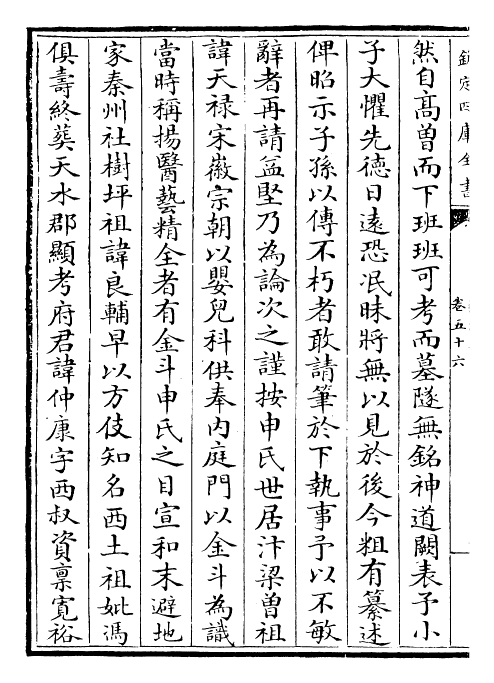 欽定四庫全書
卷五十六
然自高曾而下班班可考而墓隧無銘神道闕表予小
子大懼先德日逺恐泯昧將無以見於後今粗有纂述
俾昭示子孫以傳不朽者敢請筆於下執事予以不敏
辭者再請益堅乃為論次之謹按申氏世居汴梁曽祖
諱天禄宋徽宗朝以嬰兒科供奉内庭門以金斗為識
當時稱揚醫藝精全者有金斗申氏之目宣和末避地
家秦州社樹坪祖諱良輔早以方伎知名西土祖妣馮
俱壽終葬天水郡顯考府君諱仲康字西叔資禀寛裕